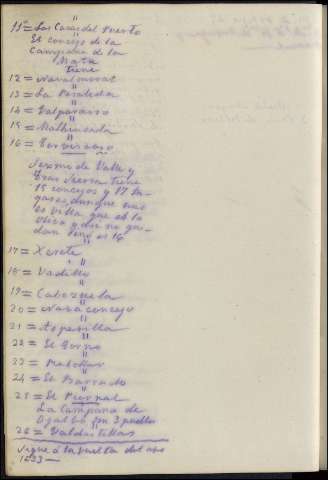 11ª = Las Casas del Puerto
El concejo de la
Campana de la
Mata
tiene
12 = Navalmoral
13 = La Peraleda
14 = Valparaiso
15 = Malhincada
16 = Torviscoso
Jerime de Valle y
Tras Sierra tiene
15 concejos y 17 lu-
gares, aunque uno
es villa que es la
otra y dho no que-
dan sino es 16
17 = Xerete
18 = Vadillo
19 = Cabezuela
20 = Navaconcejo
21 = Asperilla
22 = El Torno
23 = Rebollar
24 = El Barrado
25 = El Piornal
La Campana de
Ojalba son 3 pueblos
26 = Valdastillas
Sigue á la vuelta del año
1633 —